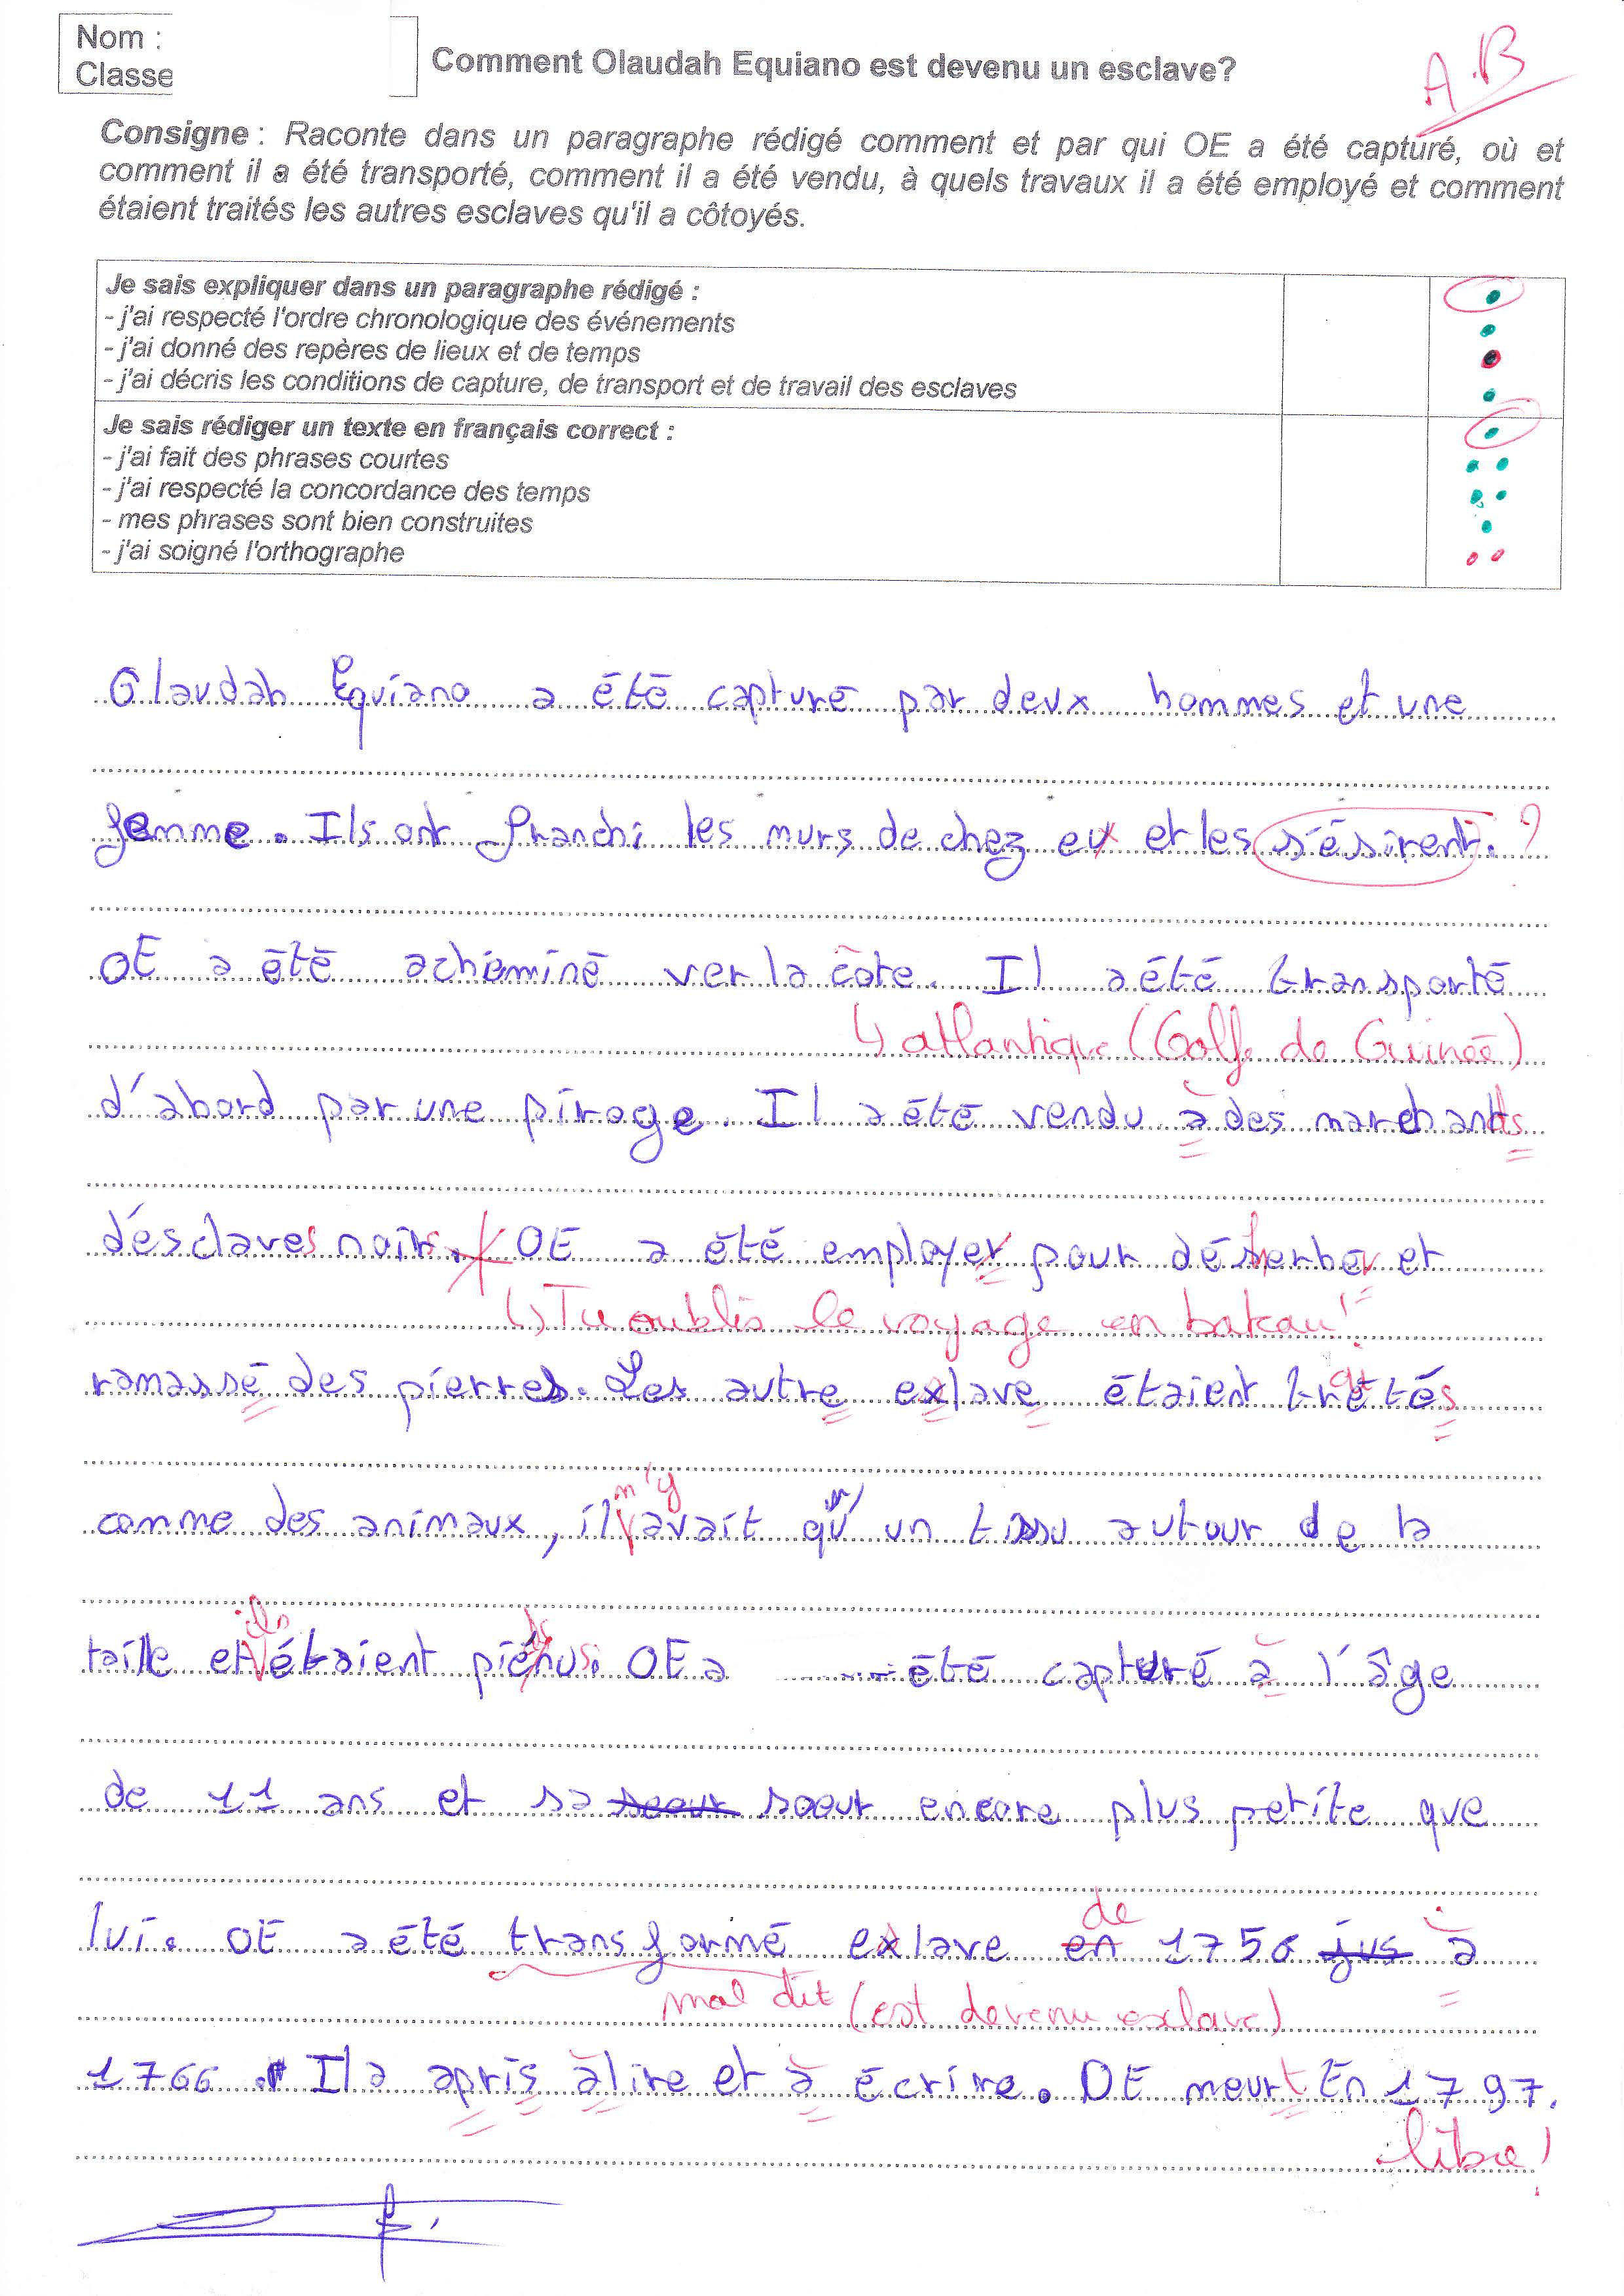 Nom :
Classe
Comment Olaudah Equiano est devenu un esclave?
A.B
Consigne : Raconte dans un paragraphe rédigé comment et par qui OE a été capturé, où et
comment il a été transporté, comment il a été vendu, à quels travaux il a été employé et comment
étaient traités les autres esclaves qu'il a côtoyés.
Je sais expliquer dans un paragraphe rédigé :
- j'ai respecté l'ordre chronologique des événements
- j'ai donné des repères de lieux et de temps
- j'ai décris les conditions de capture, de transport et de travail des esclaves
Je sais rédiger un texte en français correct :
- j'ai fait des phrases courtes
- j'ai respecté la concordance des temps
- mes phrases sont bien construites
- j'ai soigné l'orthographe
Olaudah Equiano a été capturé par deux hommes et une
femme. Ils ont franchi les murs de chez eux et les sésirent. ?
OE a été achéminé ver la côte. Il a été transporté
↳ atlantique (Golfe de Guinée)
d'abord par une piroge. Il a été vendu à des marchants
d'esclaves noirs. OE a été employer pour désherber et
↳ Tu oublis le voyage en bateau !
ramassé des pierres. Les autre exlave étaient trétés
ai
n'y
comme des animaux, il avait qu'un tissu autour de la
ils
taille et étaient piénus. OE a été capturé à l'âge
de 11 ans et sa soeur encore plus petite que
de
lui. OE a été transformé exlave en 1756 jus à
mal dit (est devenu esclave)
1766. Il a apris à lire et à écrire. OE meurt En 1797.
libre !